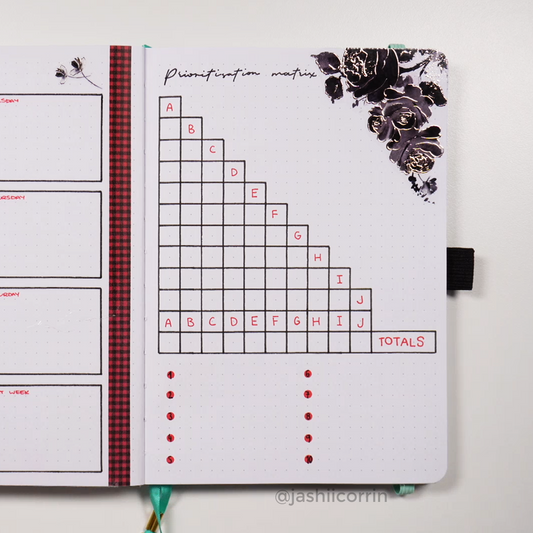 SDAY
Prioritisation matrix
A
B
C
D
E
F
G
H
I
J
A B C D E F G H I J
TOTALS
RSDAY
URDAY
T WEEK
1 6
2 7
3 8
4 9
5 10
@jashiicorrin